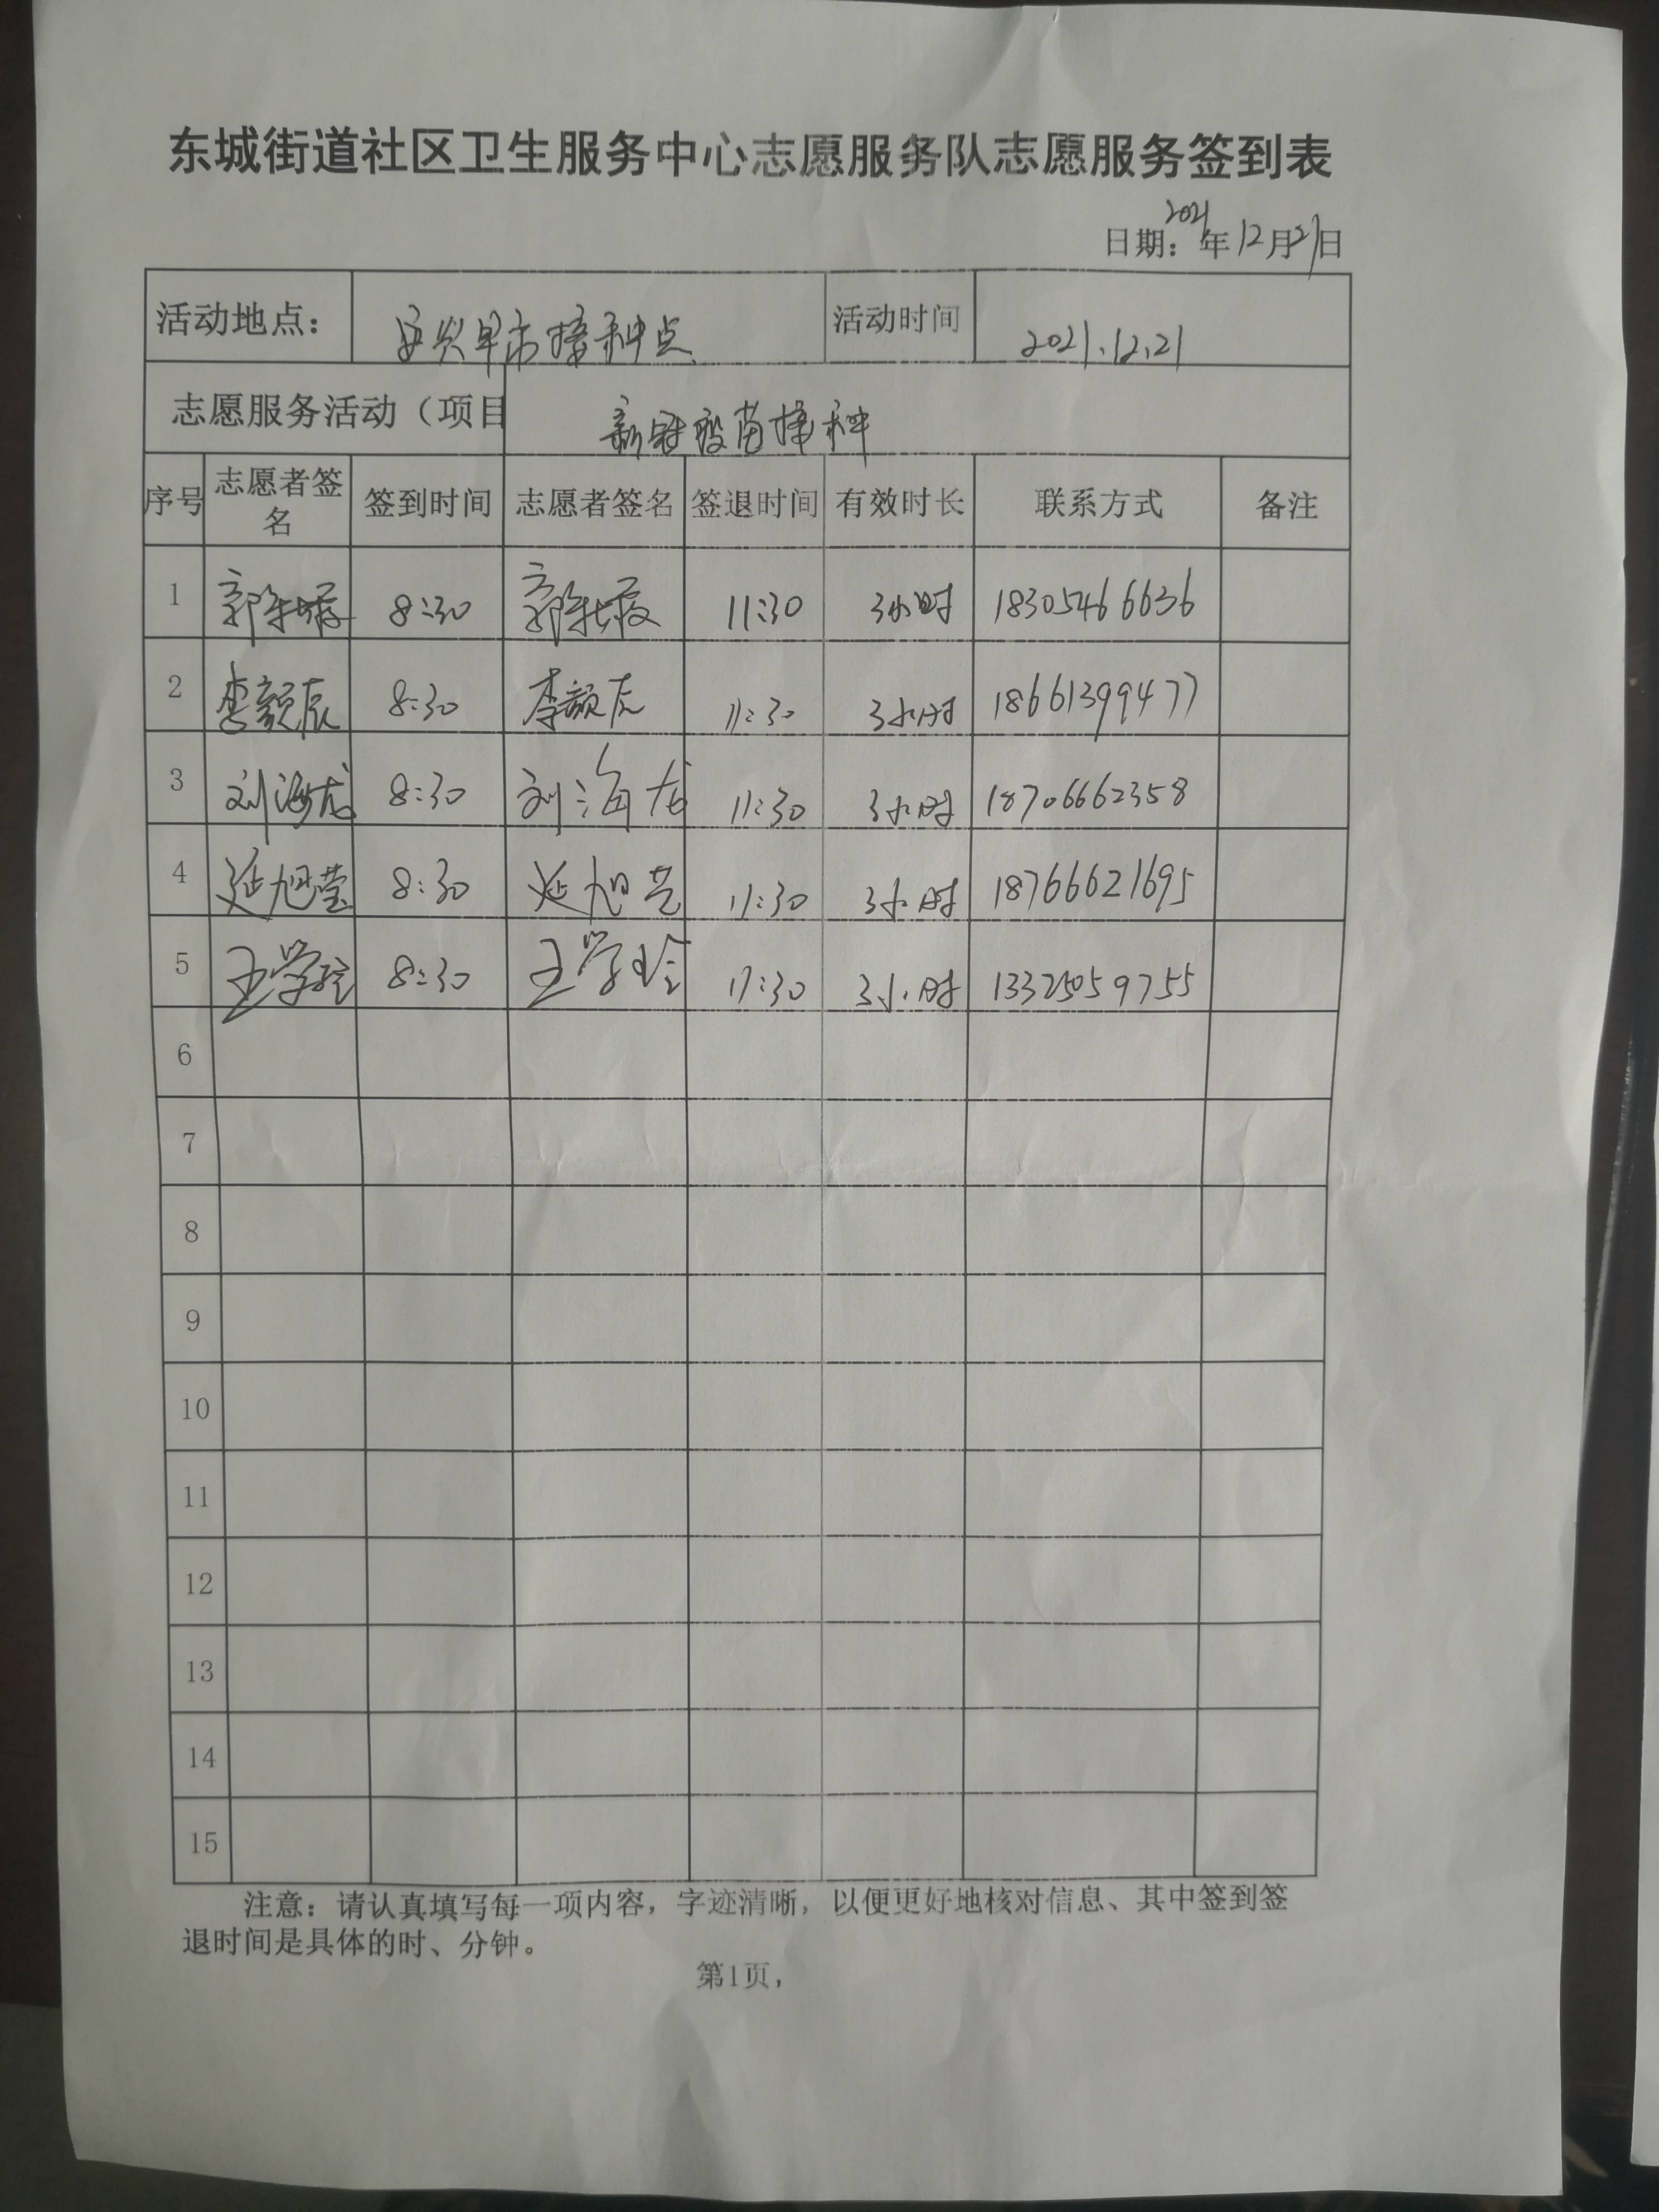 东城街道社区卫生服务中心志愿服务队志愿服务签到表
日期：2021年12月21日
活动地点： 早市接种点 活动时间 2021.12.21
志愿服务活动（项目 新冠疫苗接种
序号 志愿者签名 签到时间 志愿者签名 签退时间 有效时长 联系方式 备注
1 8:30 11:30 3小时 18305466636
2 李颜辰 8:30 李颜辰 11:30 3小时 18661399477
3 刘海龙 8:30 刘海龙 11:30 3小时 18706662358
4 延旭莹 8:30 延旭莹 11:30 3小时 18766621695
5 王学玲 8:30 王学玲 11:30 3小时 13325059755
6
7
8
9
10
11
12
13
14
15
注意：请认真填写每一项内容，字迹清晰，以便更好地核对信息、其中签到签
退时间是具体的时、分钟。
第1页，